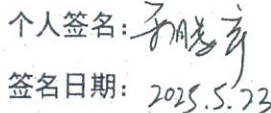 个人签名:
签名日期: 2025.5.23